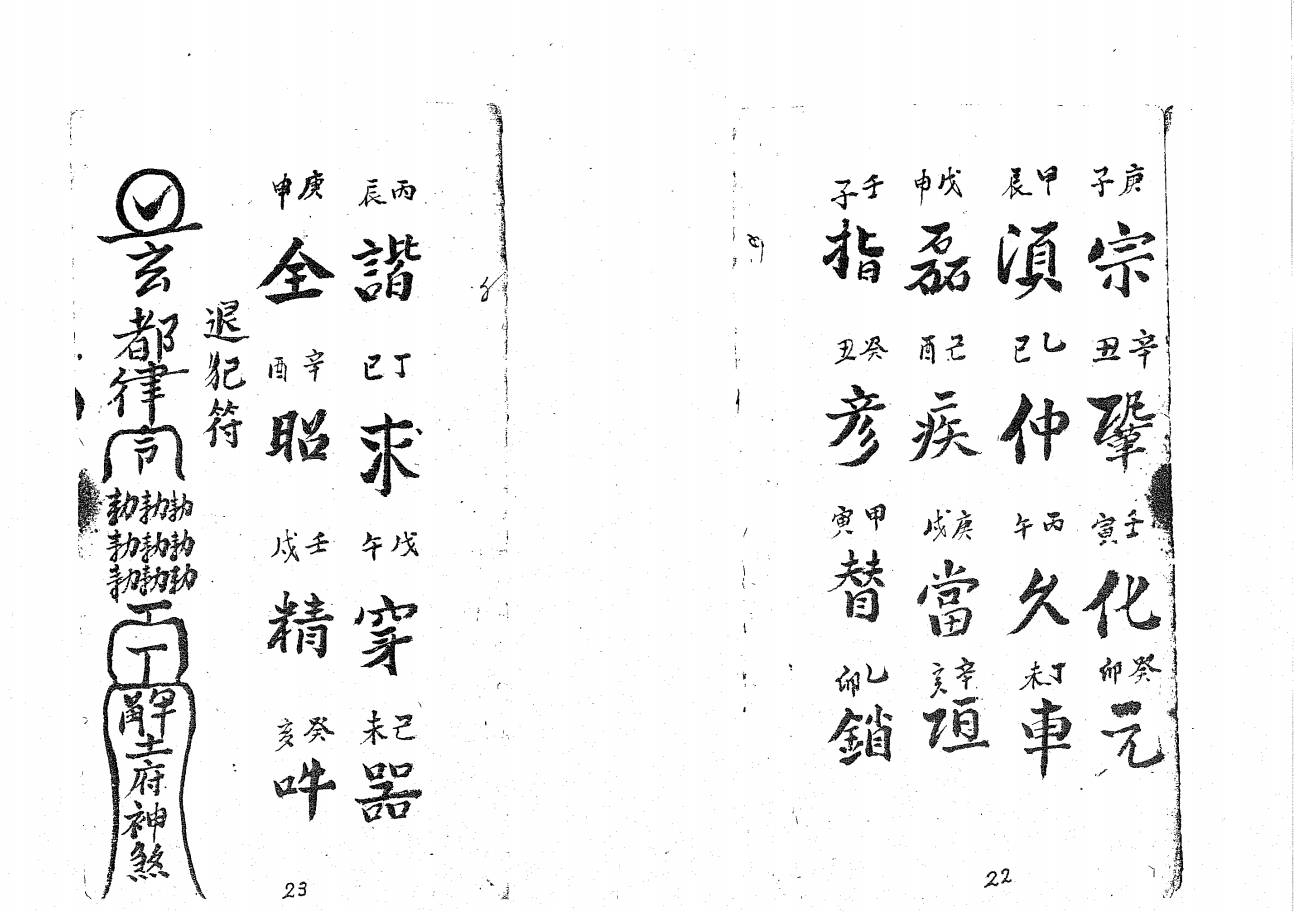 庚子
宗
辛丑
鞏
壬寅
化
癸卯
元
甲辰
湏
乙巳
仲
丙午
久
丁未
車
戊申
磊
己酉
疾
庚戌
當
辛亥
垣
壬子
指
癸丑
彦
甲寅
替
乙卯
鎖
22
丙辰
諧
丁巳
求
戊午
穿
己未
器
庚申
全
辛酉
昭
壬戌
精
癸亥
吽
退犯符
玄都律令
勅勅勅
勅勅勅
勅勅勅
土府神煞
23